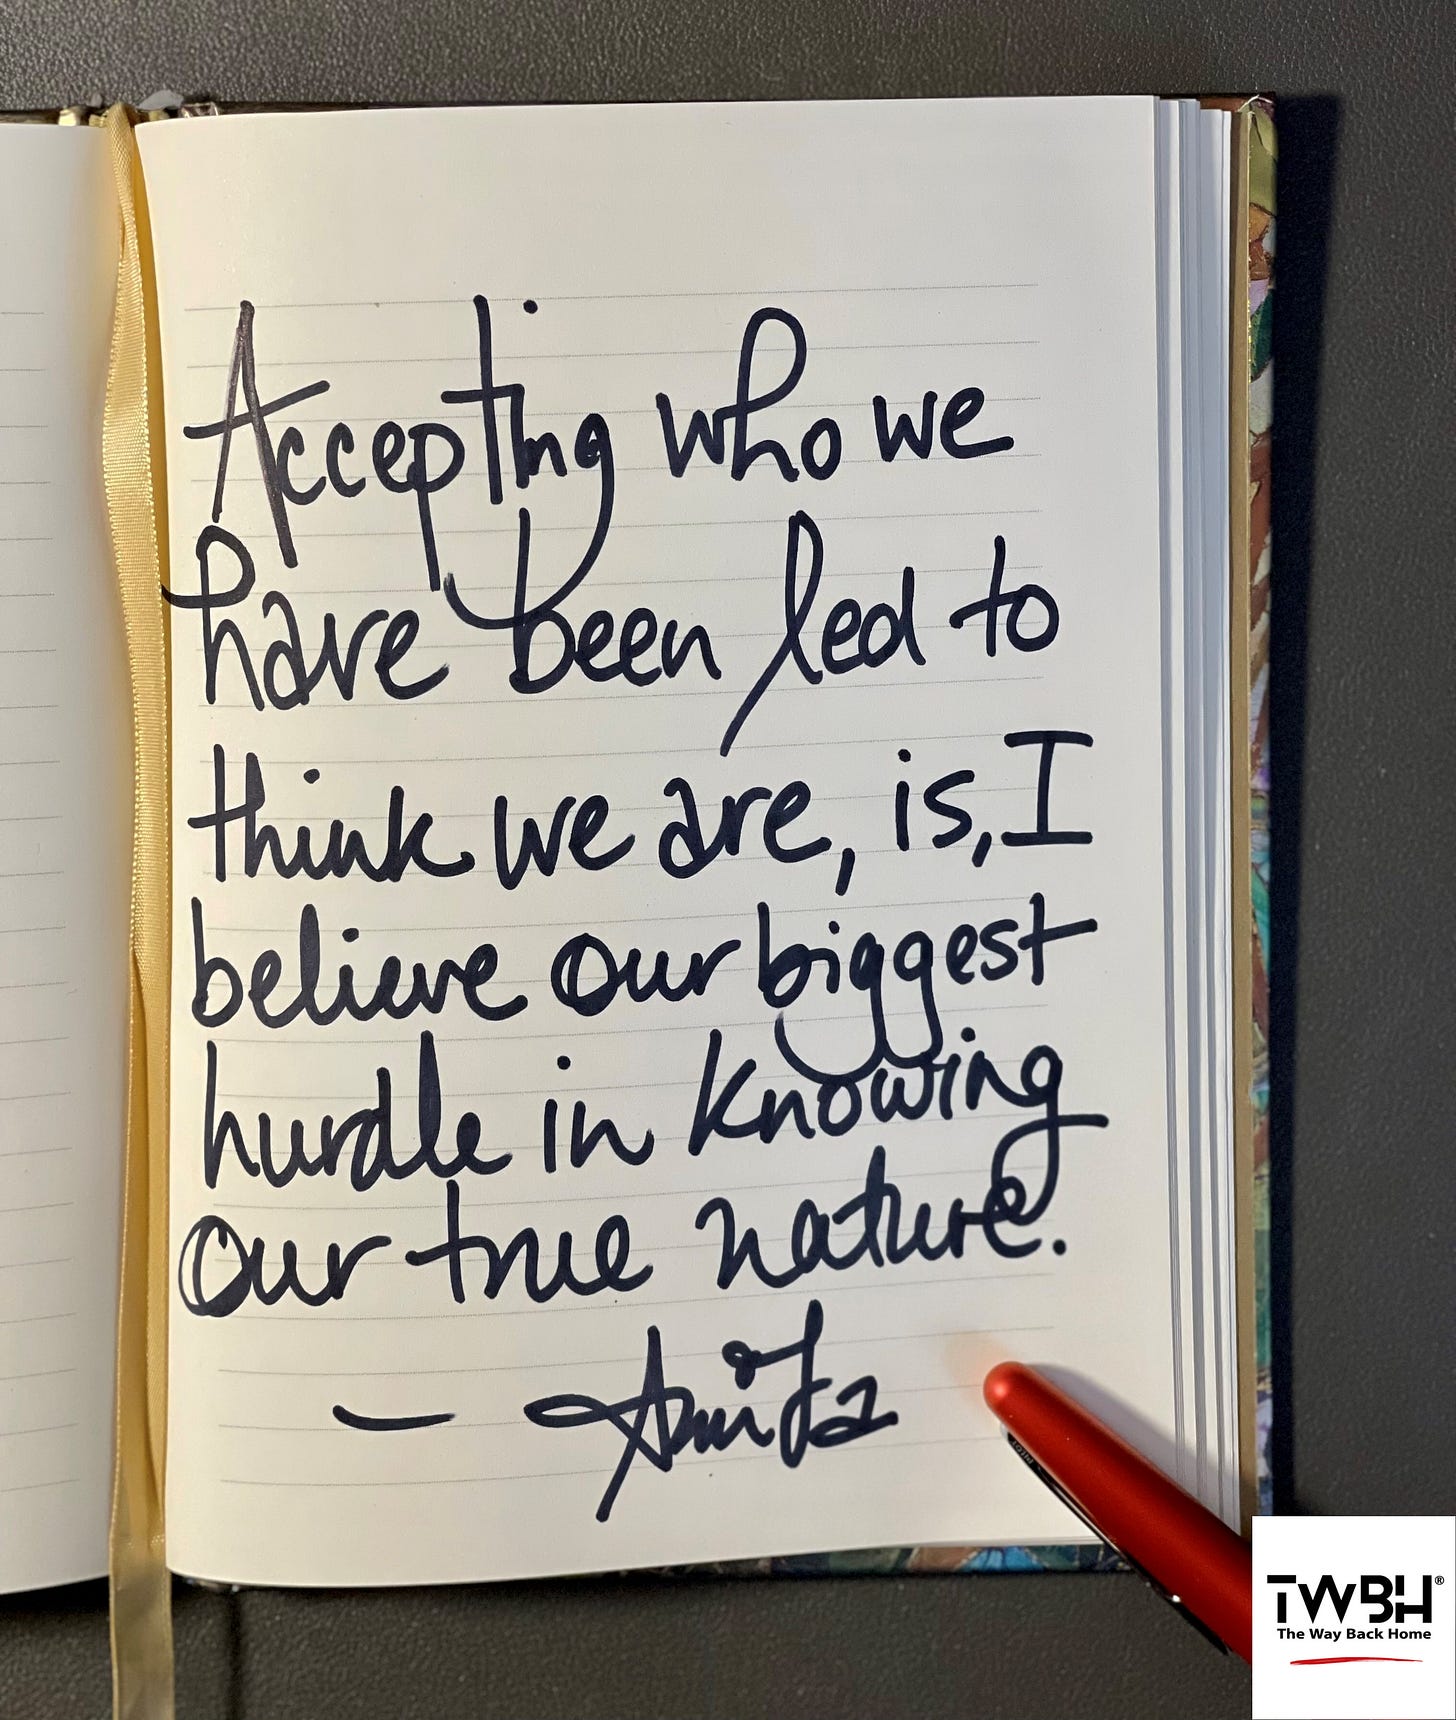 Accepting who we
have been led to
think we are, is, I
believe our biggest
hurdle in knowing
our true nature.
— Anita
TWBH®
The Way Back Home